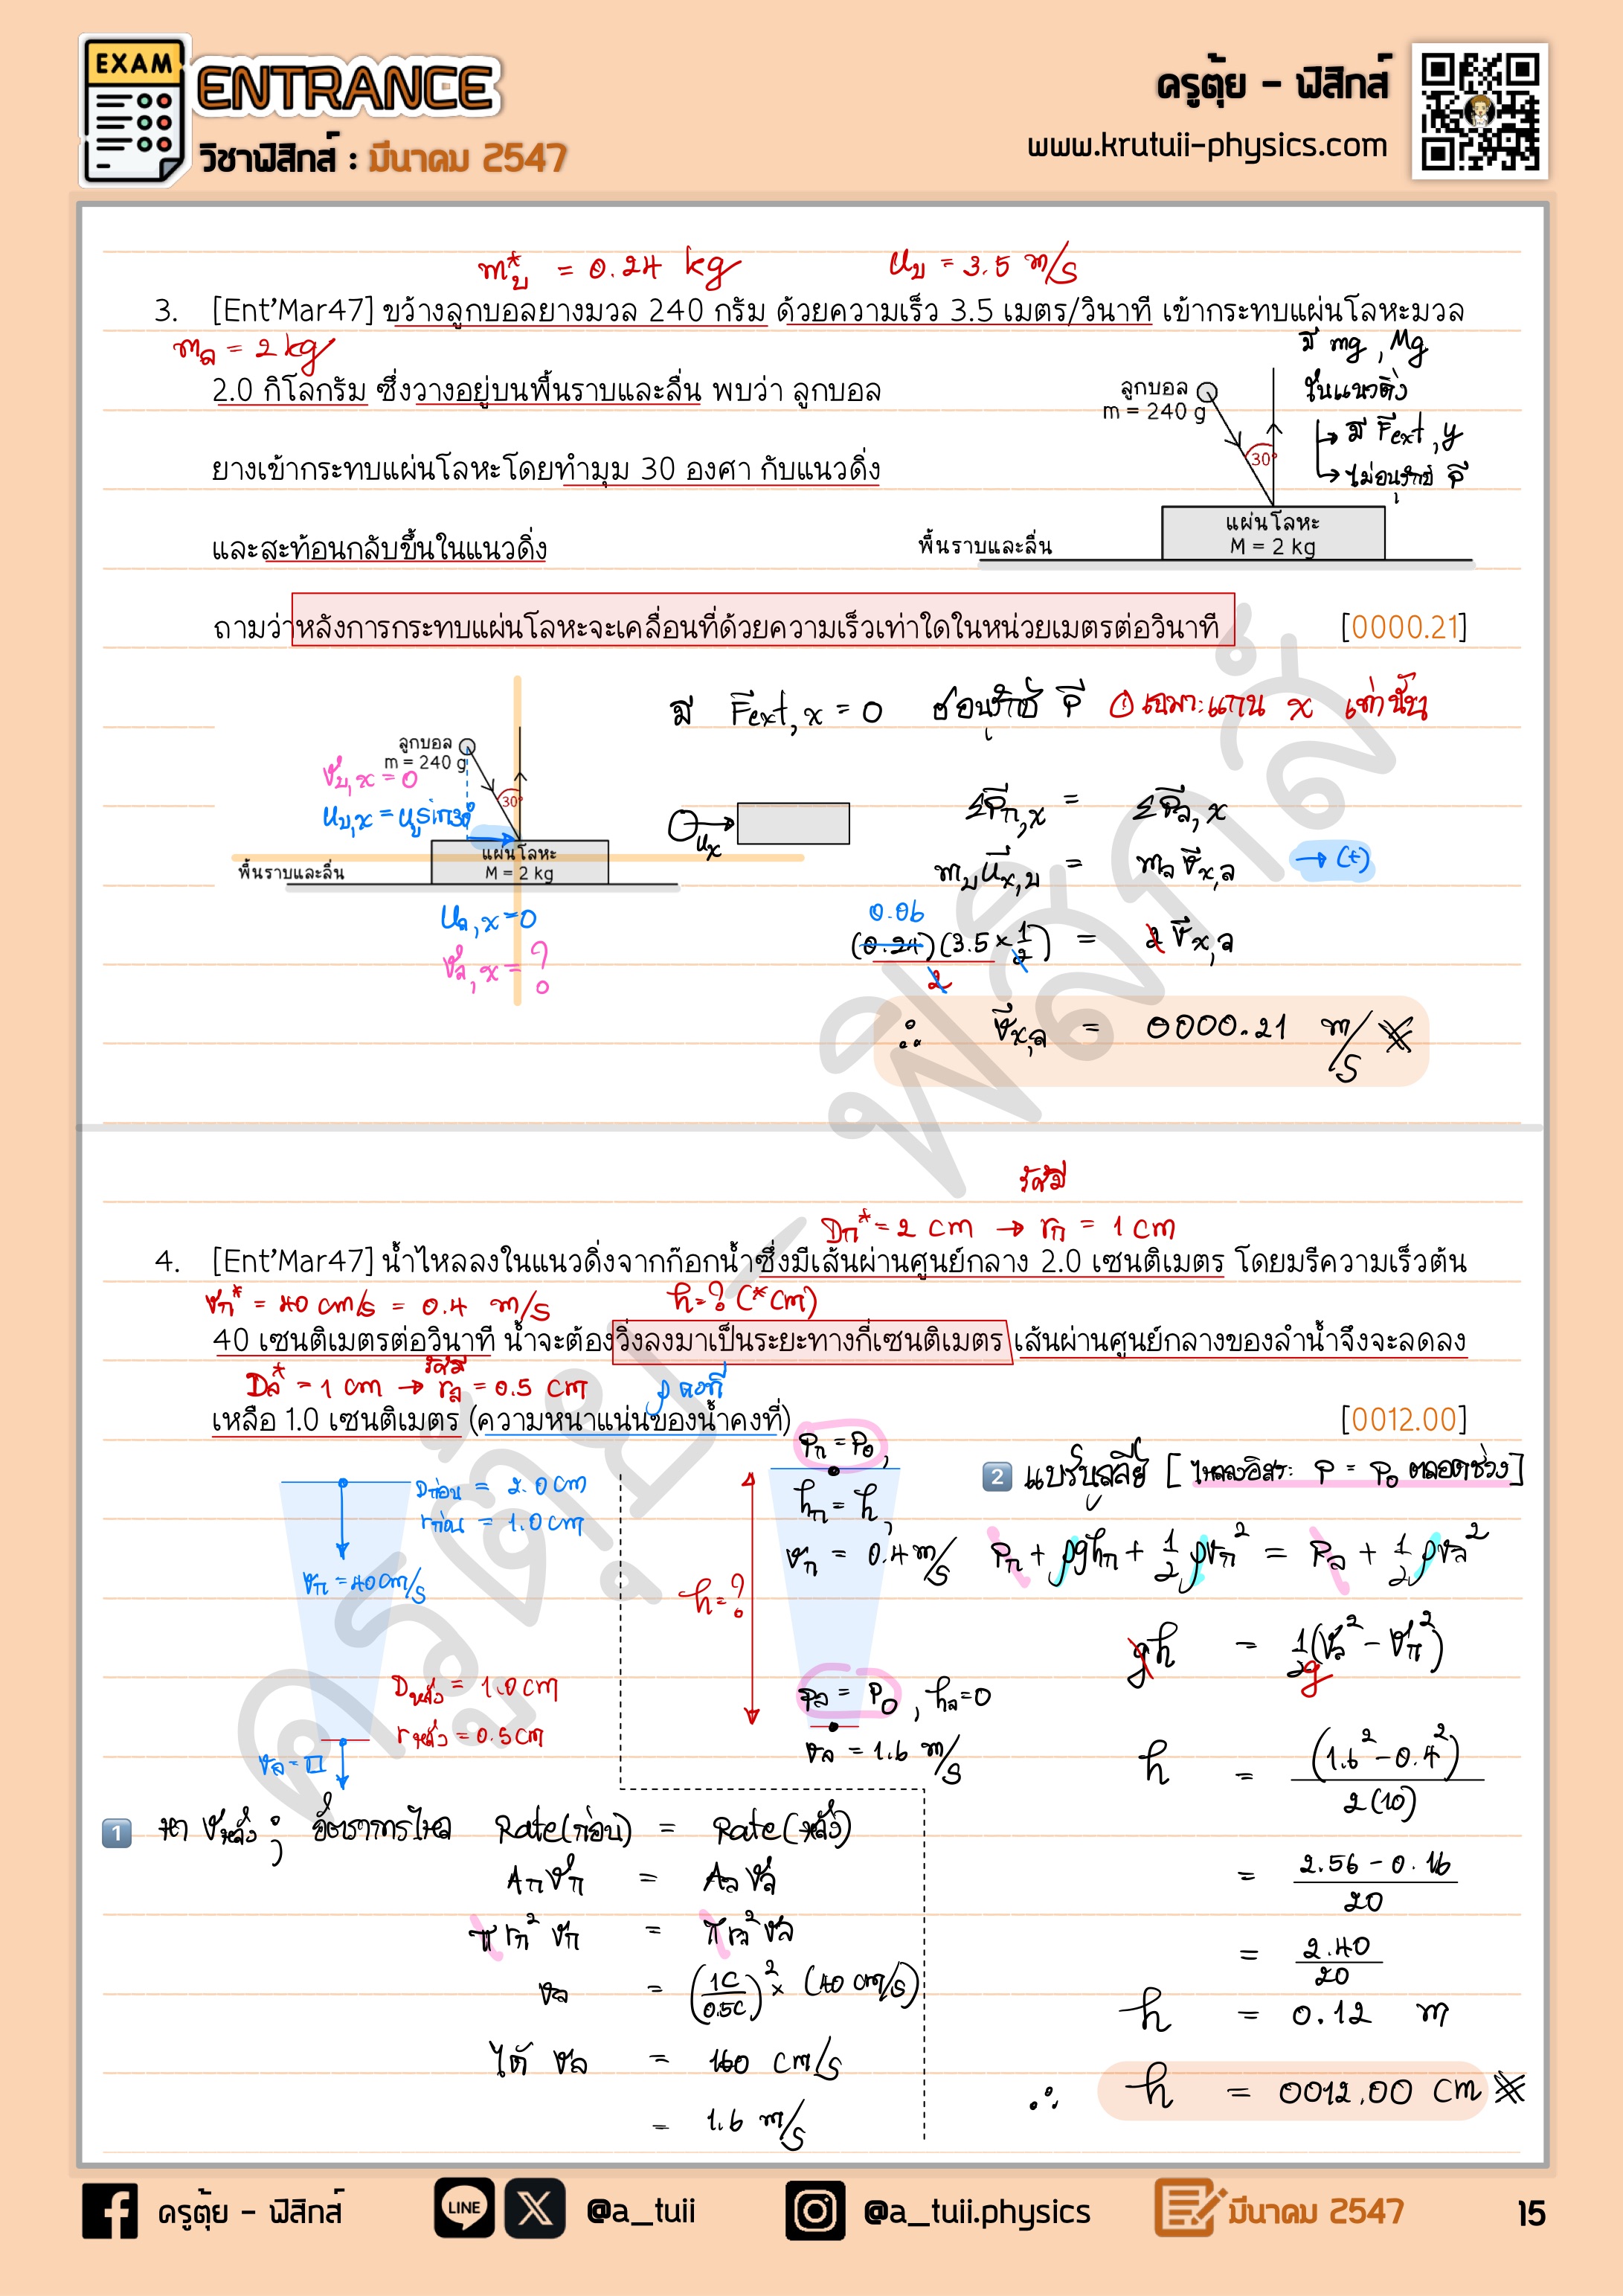 EXAM
ENTRANCE
วิชาฟิสิกส์ : มีนาคม 2547
ครูตุ้ย - ฟิสิกส์
www.krutuii-physics.com
m*บ = 0.24 kg
uบ = 3.5 m/s
3. [Ent'Mar47] ขว้างลูกบอลยางมวล 240 กรัม ด้วยความเร็ว 3.5 เมตร/วินาที เข้ากระทบแผ่นโลหะมวล
mล = 2 kg
2.0 กิโลกรัม ซึ่งวางอยู่บนพื้นราบและลื่น พบว่า ลูกบอล
ยางเข้ากระทบแผ่นโลหะโดยทำมุม 30 องศา กับแนวดิ่ง
และสะท้อนกลับขึ้นในแนวดิ่ง
มี mg, Mg
ในแนวดิ่ง
→ มี Fext, y
→ ไม่อนุรักษ์ P
ลูกบอล
m = 240 g
30°
แผ่นโลหะ
M = 2 kg
พื้นราบและลื่น
ถามว่าหลังการกระทบแผ่นโลหะจะเคลื่อนที่ด้วยความเร็วเท่าใดในหน่วยเมตรต่อวินาที [0000.21]
มี Fext, x = 0 อนุรักษ์ P เฉพาะแกน x เท่านั้น
ลูกบอล
m = 240 g
vบ,x = 0
30°
uบ,x = uบsin30°
แผ่นโลหะ
M = 2 kg
พื้นราบและลื่น
uล,x = 0
vล,x = ?
ux
ΣPก,x = ΣPล,x
mบ ux,บ = mล vx,ล → (+)
0.06
(0.24)(3.5 × 1/2) = 2 vx,ล
2
∴ vx,ล = 0000.21 m/s
รัศมี
Dก* = 2 cm → rก = 1 cm
4. [Ent'Mar47] น้ำไหลลงในแนวดิ่งจากก๊อกน้ำซึ่งมีเส้นผ่านศูนย์กลาง 2.0 เซนติเมตร โดยมรีความเร็วต้น
vก* = 40 cm/s = 0.4 m/s
h = ? (*cm)
40 เซนติเมตรต่อวินาที น้ำจะต้องวิ่งลงมาเป็นระยะทางกี่เซนติเมตร เส้นผ่านศูนย์กลางของลำน้ำจึงจะลดลง
รัศมี
Dล* = 1 cm → rล = 0.5 cm
ρ คงที่
เหลือ 1.0 เซนติเมตร (ความหนาแน่นของน้ำคงที่) [0012.00]
Dก่อน = 2.0 cm
rก่อน = 1.0 cm
vก = 40 cm/s
Dหลัง = 1.0 cm
rหลัง = 0.5 cm
Pก = P0,
hก = h,
vก = 0.4 m/s
h = ?
Pล = P0, hล = 0
vล = 1.6 m/s
2 แบร์นูลลีย์ [ไหลลงอิสระ P = P0 ตลอดช่วง]
Pก + ρghก + 1/2 ρvก² = Pล + 1/2 ρvล²
gh = 1/2g (vล² - vก²)
h = (1.6² - 0.4²)/2(10)
= 2.56 - 0.16/20
= 2.40/20
h = 0.12 m
∴ h = 0012.00 cm
1 หา vหลัง ; อัตราการไหล Rate(ก่อน) = Rate(หลัง)
Aก vก = Aล vล
π rก² vก = π rล² vล
vล = (1C/0.5C)² × (40 cm/s)
ได้ vล = 160 cm/s
= 1.6 m/s
ครูตุ้ย - ฟิสิกส์
ครูตุ้ย - ฟิสิกส์
LINE
@a_tuii
@a_tuii.physics
มีนาคม 2547
15